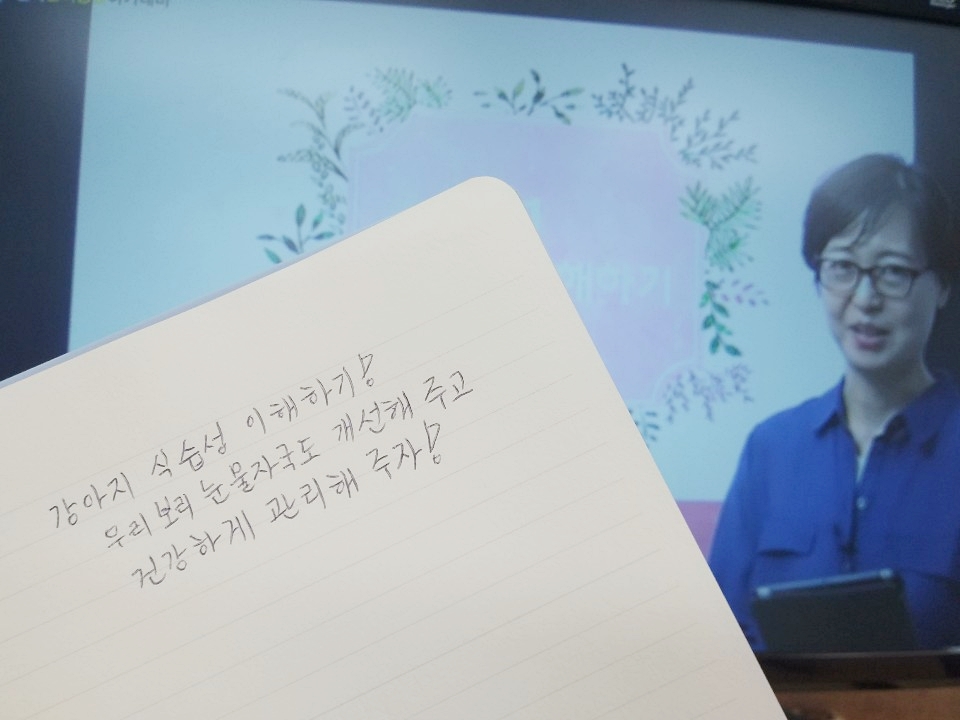 해하기
강아지 식습성 이해하기!
우리 보리 눈물자국도 개선해 주고
건강하게 관리해 주자!